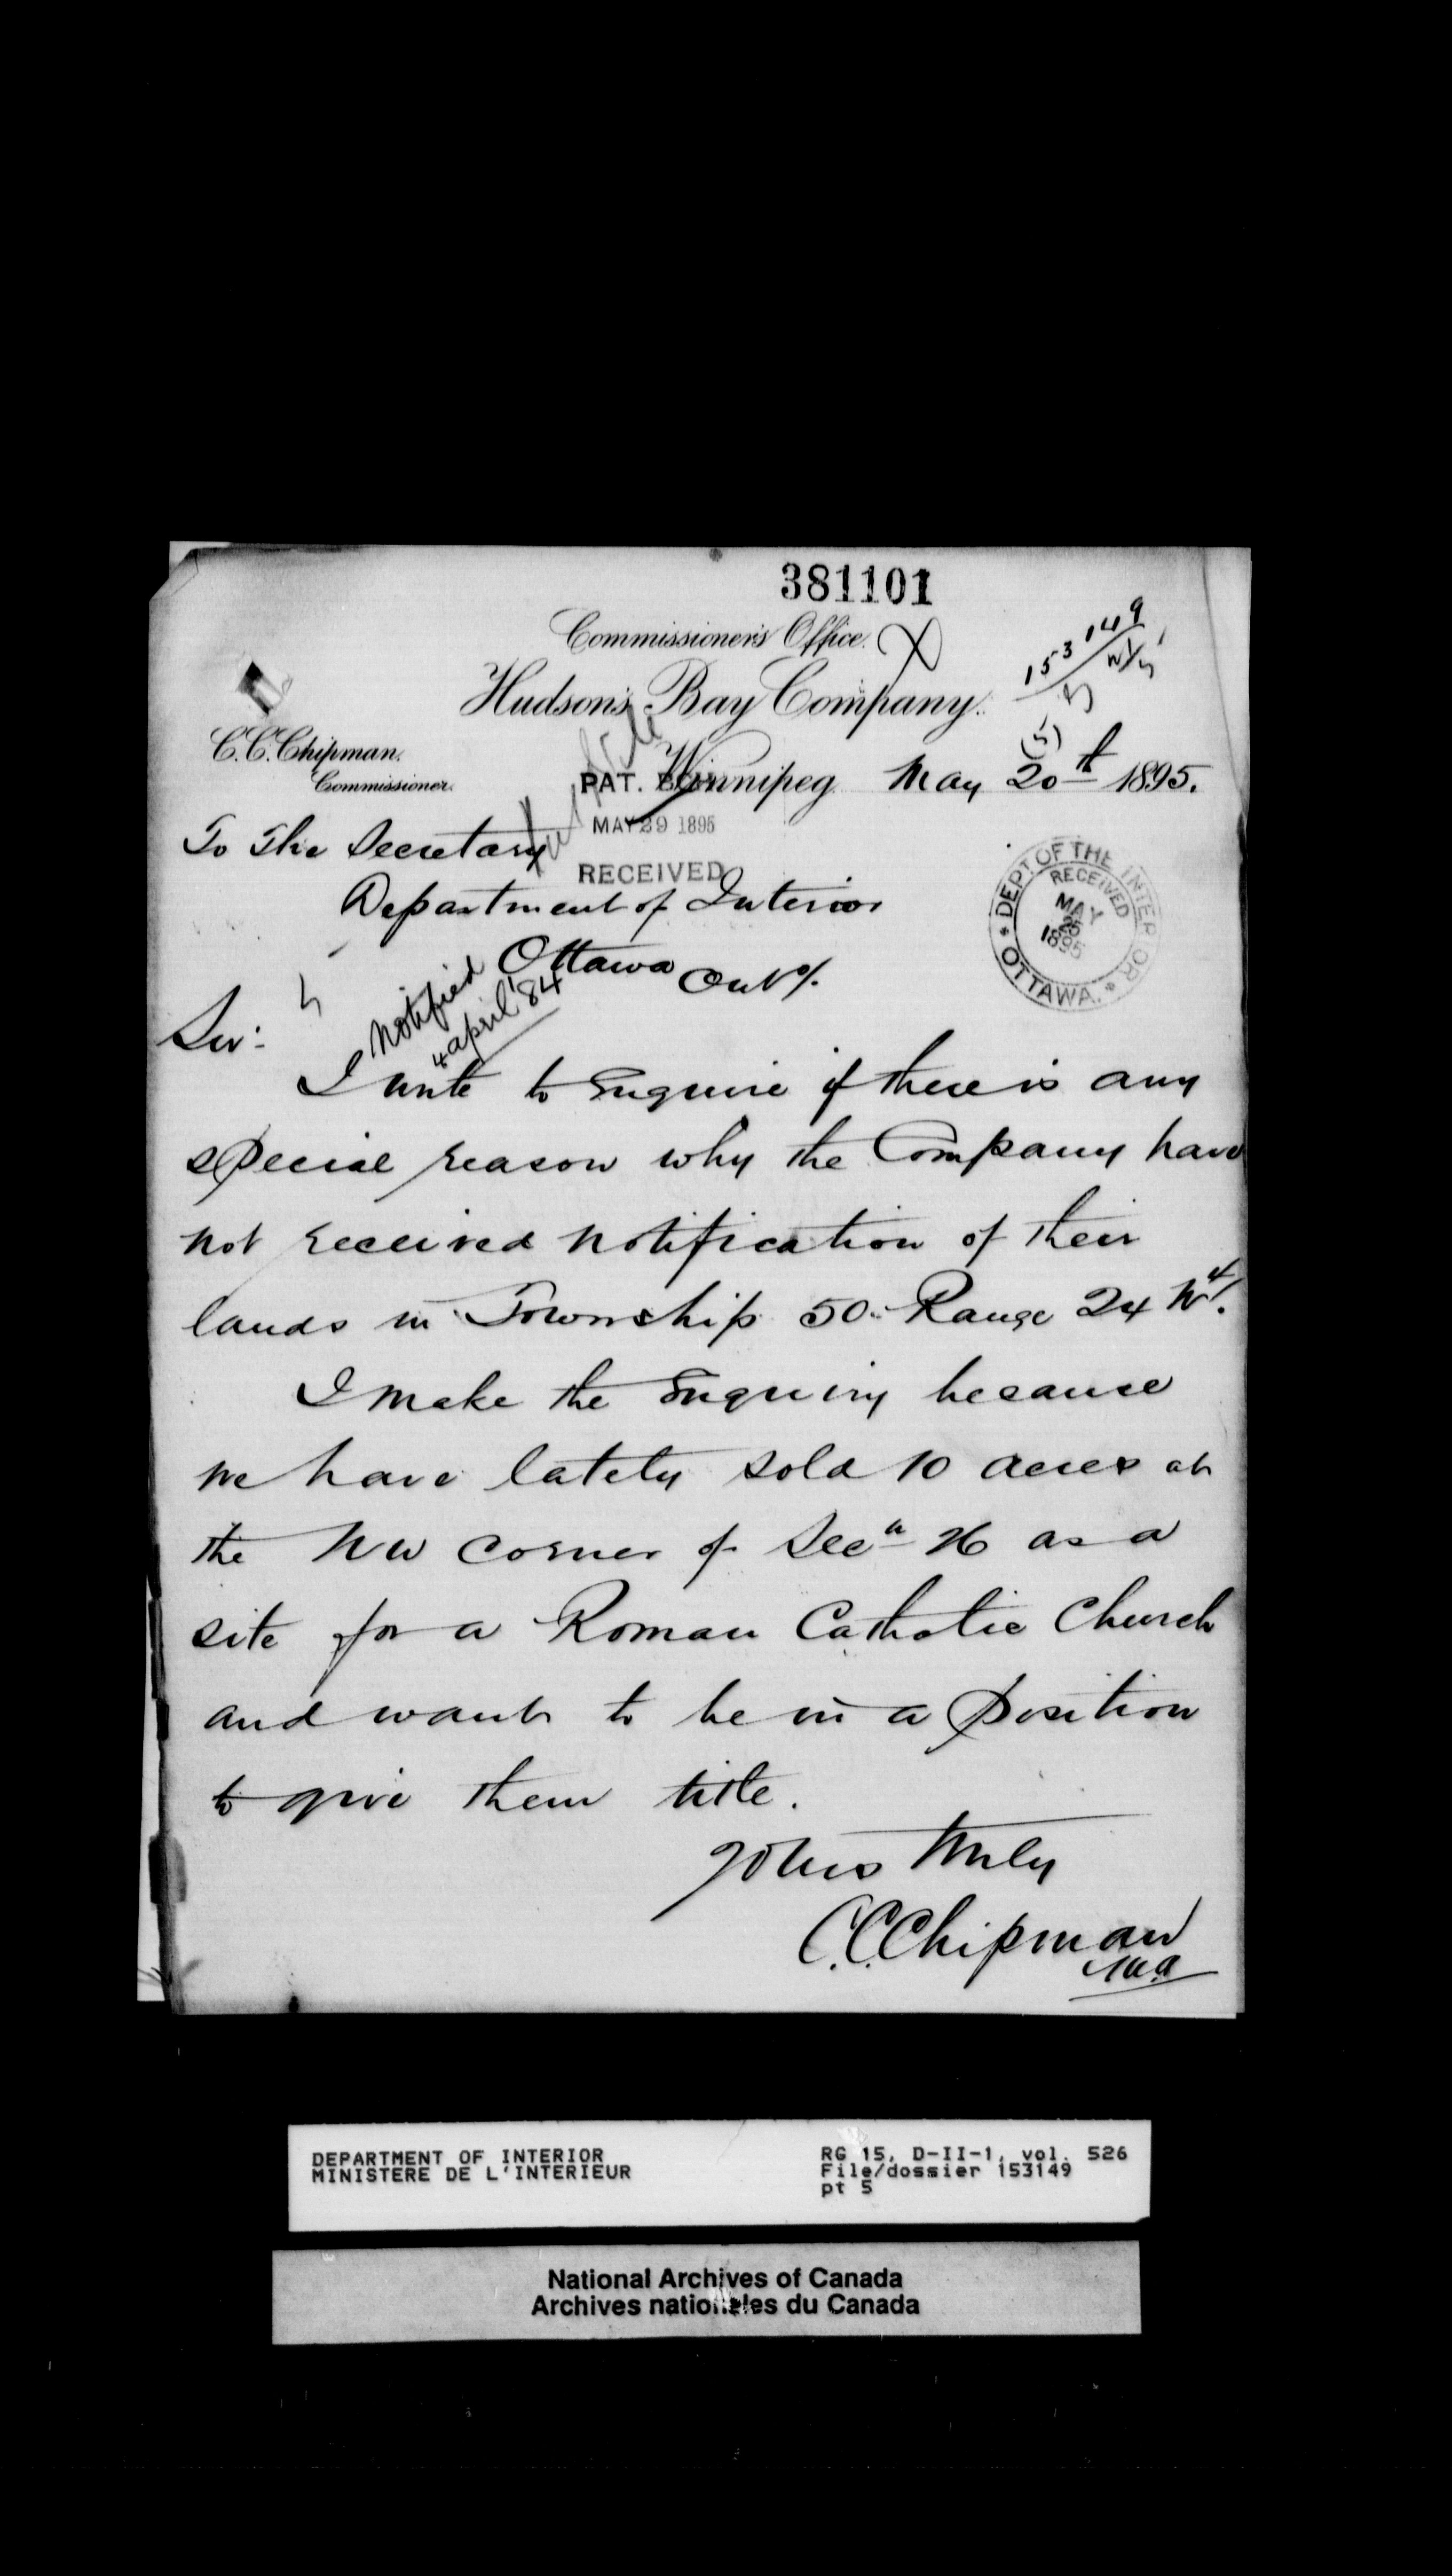 381101
Commissioner's Office.
153149
Hudson's Bay Company.
(5)
C.C. Chipman.
Commissioner.
Winnipeg May 20th 1895.
PAT. BCH.
MAY 29 1895
RECEIVED
To The Secretary
Department of Interior
Ottawa Ont/.
DEPT. OF THE INTERIOR
RECEIVED
MAY
25
1895
OTTAWA.
Notified
4 april '84
Sir:
I write to Enquire if there is any
special reason why the Company have
not received notification of their
lands in Township 50. Range 24 W4/.
I make the Enquiry because
we have lately sold 10 acres at
the NW corner of Secn 26 as a
site for a Roman Catholic Church
and want to be in a position
to give them title.
Yours truly
C.C. Chipman
DEPARTMENT OF INTERIOR
MINISTERE DE L'INTERIEUR
RG 15, D-II-1, vol. 526
File/dossier 153149
pt 5
National Archives of Canada
Archives nationales du Canada